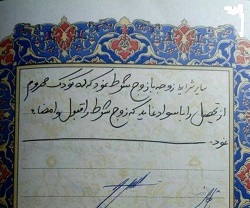 سایر شرایط زوجه با زوج شرط نمود که دو کودک محروم
از تحصیل را باسواد نماید که زوج شرط را قبول و امضاء
نمود.